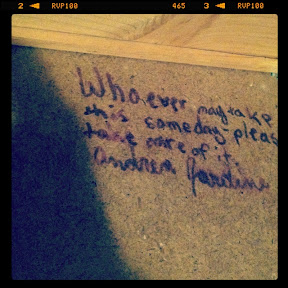 2 RVP100 465 3 RVP100
Whoever may take
this someday-pleas
take care of it.
Andrea Jardine